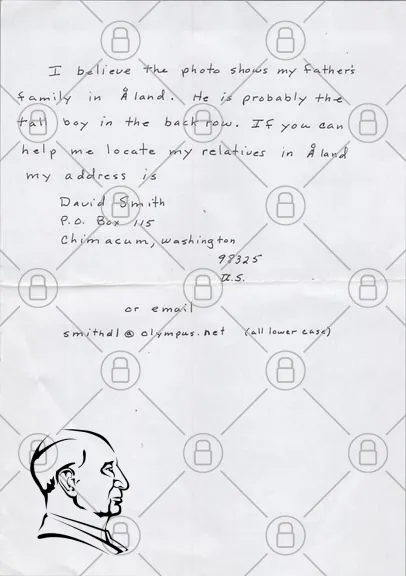 I believe the photo shows my father's
family in Åland. He is probably the
tall boy in the back row. If you can
help me locate my relatives in Åland
my address is
David Smith
P.O. Box 115
Chimacum, Washington
98325
U.S.
or email
smithdl@olympus.net (all lower case)